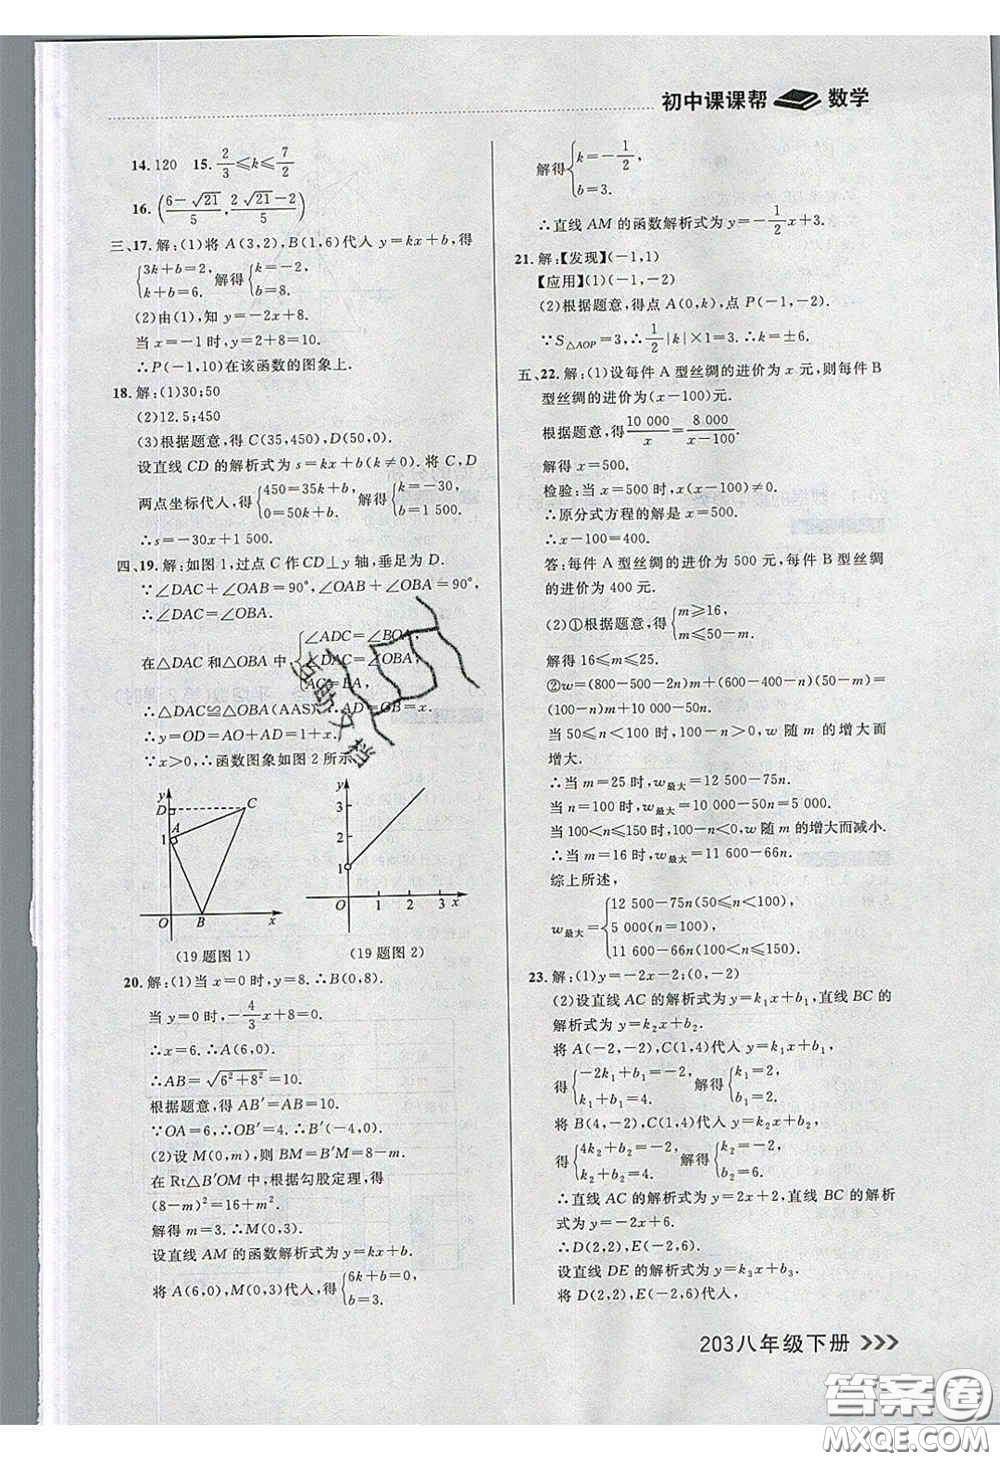 初中课课帮 数学
14.120 15.2/3≤k≤7/2
16.((6-√21)/5,(2√21-2)/5)
三、17.解:(1)将 A(3,2),B(1,6)代人 y=kx+b,得
{3k+b=2, k+b=6. 解得{k=-2, b=8.
(2)由(1),知 y=-2x+8.
当 x=-1 时,y=2+8=10.
∴P(-1,10)在该函数的图象上.
18.解:(1)30;50
(2)12.5;450
(3)根据题意,得 C(35,450),D(50,0).
设直线 CD 的解析式为 s=kx+b(k≠0).将 C,D
两点坐标代人,得{450=35k+b, 0=50k+b. 解得{k=-30, b=1 500.
∴s=-30x+1 500.
四、19.解:如图 1,过点 C 作 CD⊥y 轴,垂足为 D.
∵∠DAC+∠OAB=90°,∠OAB+∠OBA=90°,
∴∠DAC=∠OBA.
在△DAC 和△OBA 中,{∠ADC=∠BOA, ∠DAC=∠OBA, AC=BA,
∴△DAC≌△OBA(AAS).∴AD=OB=x.
∴y=OD=AO+AD=1+x.
∵x>0,∴函数图象如图 2 所示.
y D C A 1 O B x
y 3 2 1 O 1 2 3 x
(19 题图 1) (19 题图 2)
20.解:(1)当 x=0 时,y=8.∴B(0,8).
当 y=0 时,-4/3x+8=0.
∴x=6.∴A(6,0).
∴AB=√(6²+8²)=10.
根据题意,得 AB′=AB=10.
∵OA=6,∴OB′=4.∴B′(-4,0).
(2)设 M(0,m),则 BM=B′M=8-m.
在 Rt△B′OM 中,根据勾股定理,得
(8-m)²=16+m².
解得 m=3.∴M(0,3).
设直线 AM 的函数解析式为 y=kx+b.
将 A(6,0),M(0,3)代人,得{6k+b=0, b=3.
解得{k=-1/2, b=3.
∴直线 AM 的函数解析式为 y=-1/2x+3.
21.解:【发现】(-1,1)
【应用】(1)(-1,-2)
(2)根据题意,得点 A(0,k),点 P(-1,-2).
∵S△AOP=3,∴1/2|k|×1=3.∴k=±6.
五、22.解:(1)设每件 A 型丝绸的进价为 x 元,则每件 B
型丝绸的进价为(x-100)元.
根据题意,得10 000/x=8 000/(x-100).
解得 x=500.
检验:当 x=500 时,x(x-100)≠0.
∴原分式方程的解是 x=500.
∴x-100=400.
答:每件 A 型丝绸的进价为 500 元,每件 B 型丝绸
的进价为 400 元.
(2)①根据题意,得{m≥16, m≤50-m.
解得 16≤m≤25.
②w=(800-500-2n)m+(600-400-n)(50-m)=
(100-n)m+(10 000-50n).
当 50≤n<100 时,100-n>0,w 随 m 的增大而
增大.
∴当 m=25 时,w最大=12 500-75n.
当 n=100 时,w最大=10 000-50n=5 000.
当 100<n≤150 时,100-n<0,w 随 m 的增大而减小.
∴当 m=16 时,w最大=11 600-66n.
综上所述,
w最大={12 500-75n(50≤n<100), 5 000(n=100), 11 600-66n(100<n≤150).
23.解:(1)y=-2x-2;(0,-2)
(2)设直线 AC 的解析式为 y=k₁x+b₁,直线 BC 的
解析式为 y=k₂x+b₂.
将 A(-2,-2),C(1,4)代人 y=k₁x+b₁,
得{-2k₁+b₁=-2, k₁+b₁=4. 解得{k₁=2, b₁=2.
将 B(4,-2),C(1,4)代人 y=k₂x+b₂,
得{4k₂+b₂=-2, k₂+b₂=4. 解得{k₂=-2, b₂=6.
∴直线 AC 的解析式为 y=2x+2,直线 BC 的解析
式为 y=-2x+6.
∴D(2,2),E(-2,6).
设直线 DE 的解析式为 y=k₃x+b₃.
将 D(2,2),E(-2,6)代人,
203八年级下册
答案圈
MXQE.COM